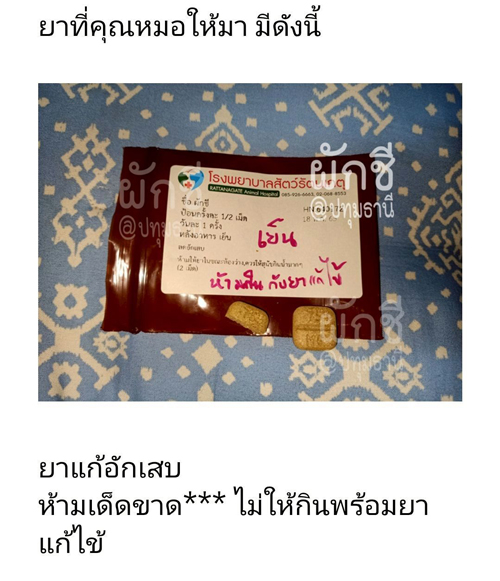 ยาที่คุณหมอให้มา มีดังนี้
ผักชี
@ปทุมธานี
โรงพยาบาลสัตว์รัตน
RATTANAGATE Animal Hospital 085-926-6663, 02-068-8553
ชื่อ ผักชี
ป้อนครั้งละ 1/2 เม็ด
วันละ 1 ครั้ง
หลังอาหาร เย็น
เย็น
ลดอักเสบ
(2 เม็ด)
ห้ามกิน กับยาแก้ไข้
ผักชี
@ปทุมธานี
ยาแก้อักเสบ
ห้ามเด็ดขาด*** ไม่ให้กินพร้อมยา
แก้ไข้